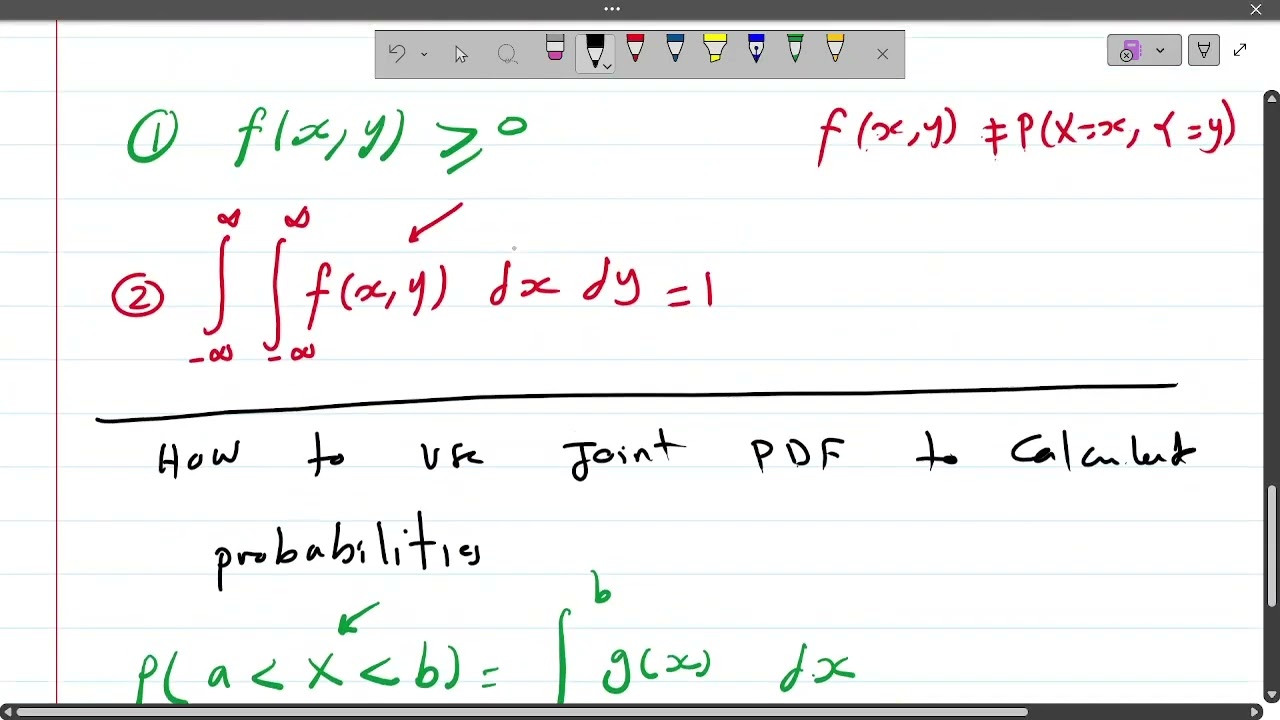 ① f(x, y) ≥ 0
f(x, y) ≠ P(X=x, Y=y)
② ∫_{-∞}^{∞} ∫_{-∞}^{∞} f(x, y) dx dy = 1
How to use Joint PDF to Calculate
probabilities
P( a < X < b) = ∫^{b} g(x) dx